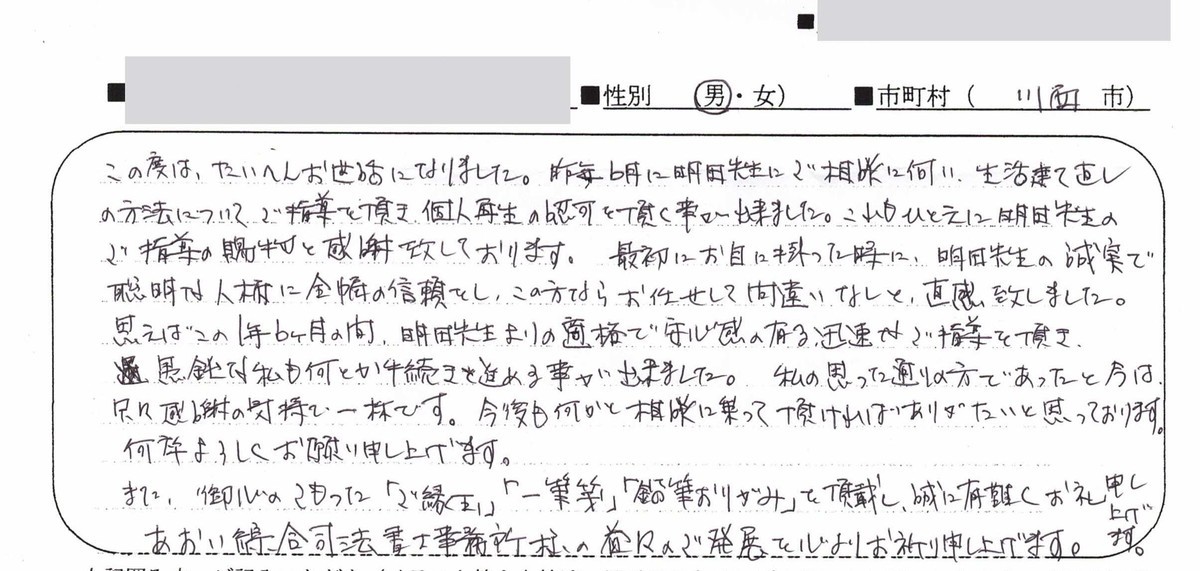 ■
■ ■性別 (男・女) ■市町村( 川西 市)
この度は、たいへんお世話になりました。昨年6月に明田先生にご相談に伺い、生活建て直し
の方法についてご指導を頂き、個人再生の認可を頂く事が出来ました。これもひとえに明田先生の
ご指導の賜物と感謝致しております。 最初にお目に掛った時に、明田先生の誠実で
聡明な人柄に全幅の信頼をし、この方ならお任せして間違いなしと、直感致しました。
思えばこの1年6ヶ月の間、明田先生よりの適格で安心感の有る迅速なご指導を頂き、
愚鈍な私も何とか手続きを進める事が出来ました。 私の思った通りの方であったと今は、
只々感謝の気持で一杯です。今後も何かと相談に乗って頂ければありがたいと思っております。
何卒よろしくお願い申し上げます。
また、御心のこもった「ご縁玉」「一筆箋」「鉛筆おりがみ」を頂戴し、誠に有難くお礼申し上げます。
あおい綜合司法書士事務所 の益々のご発展を心よりお祈り申し上げます。